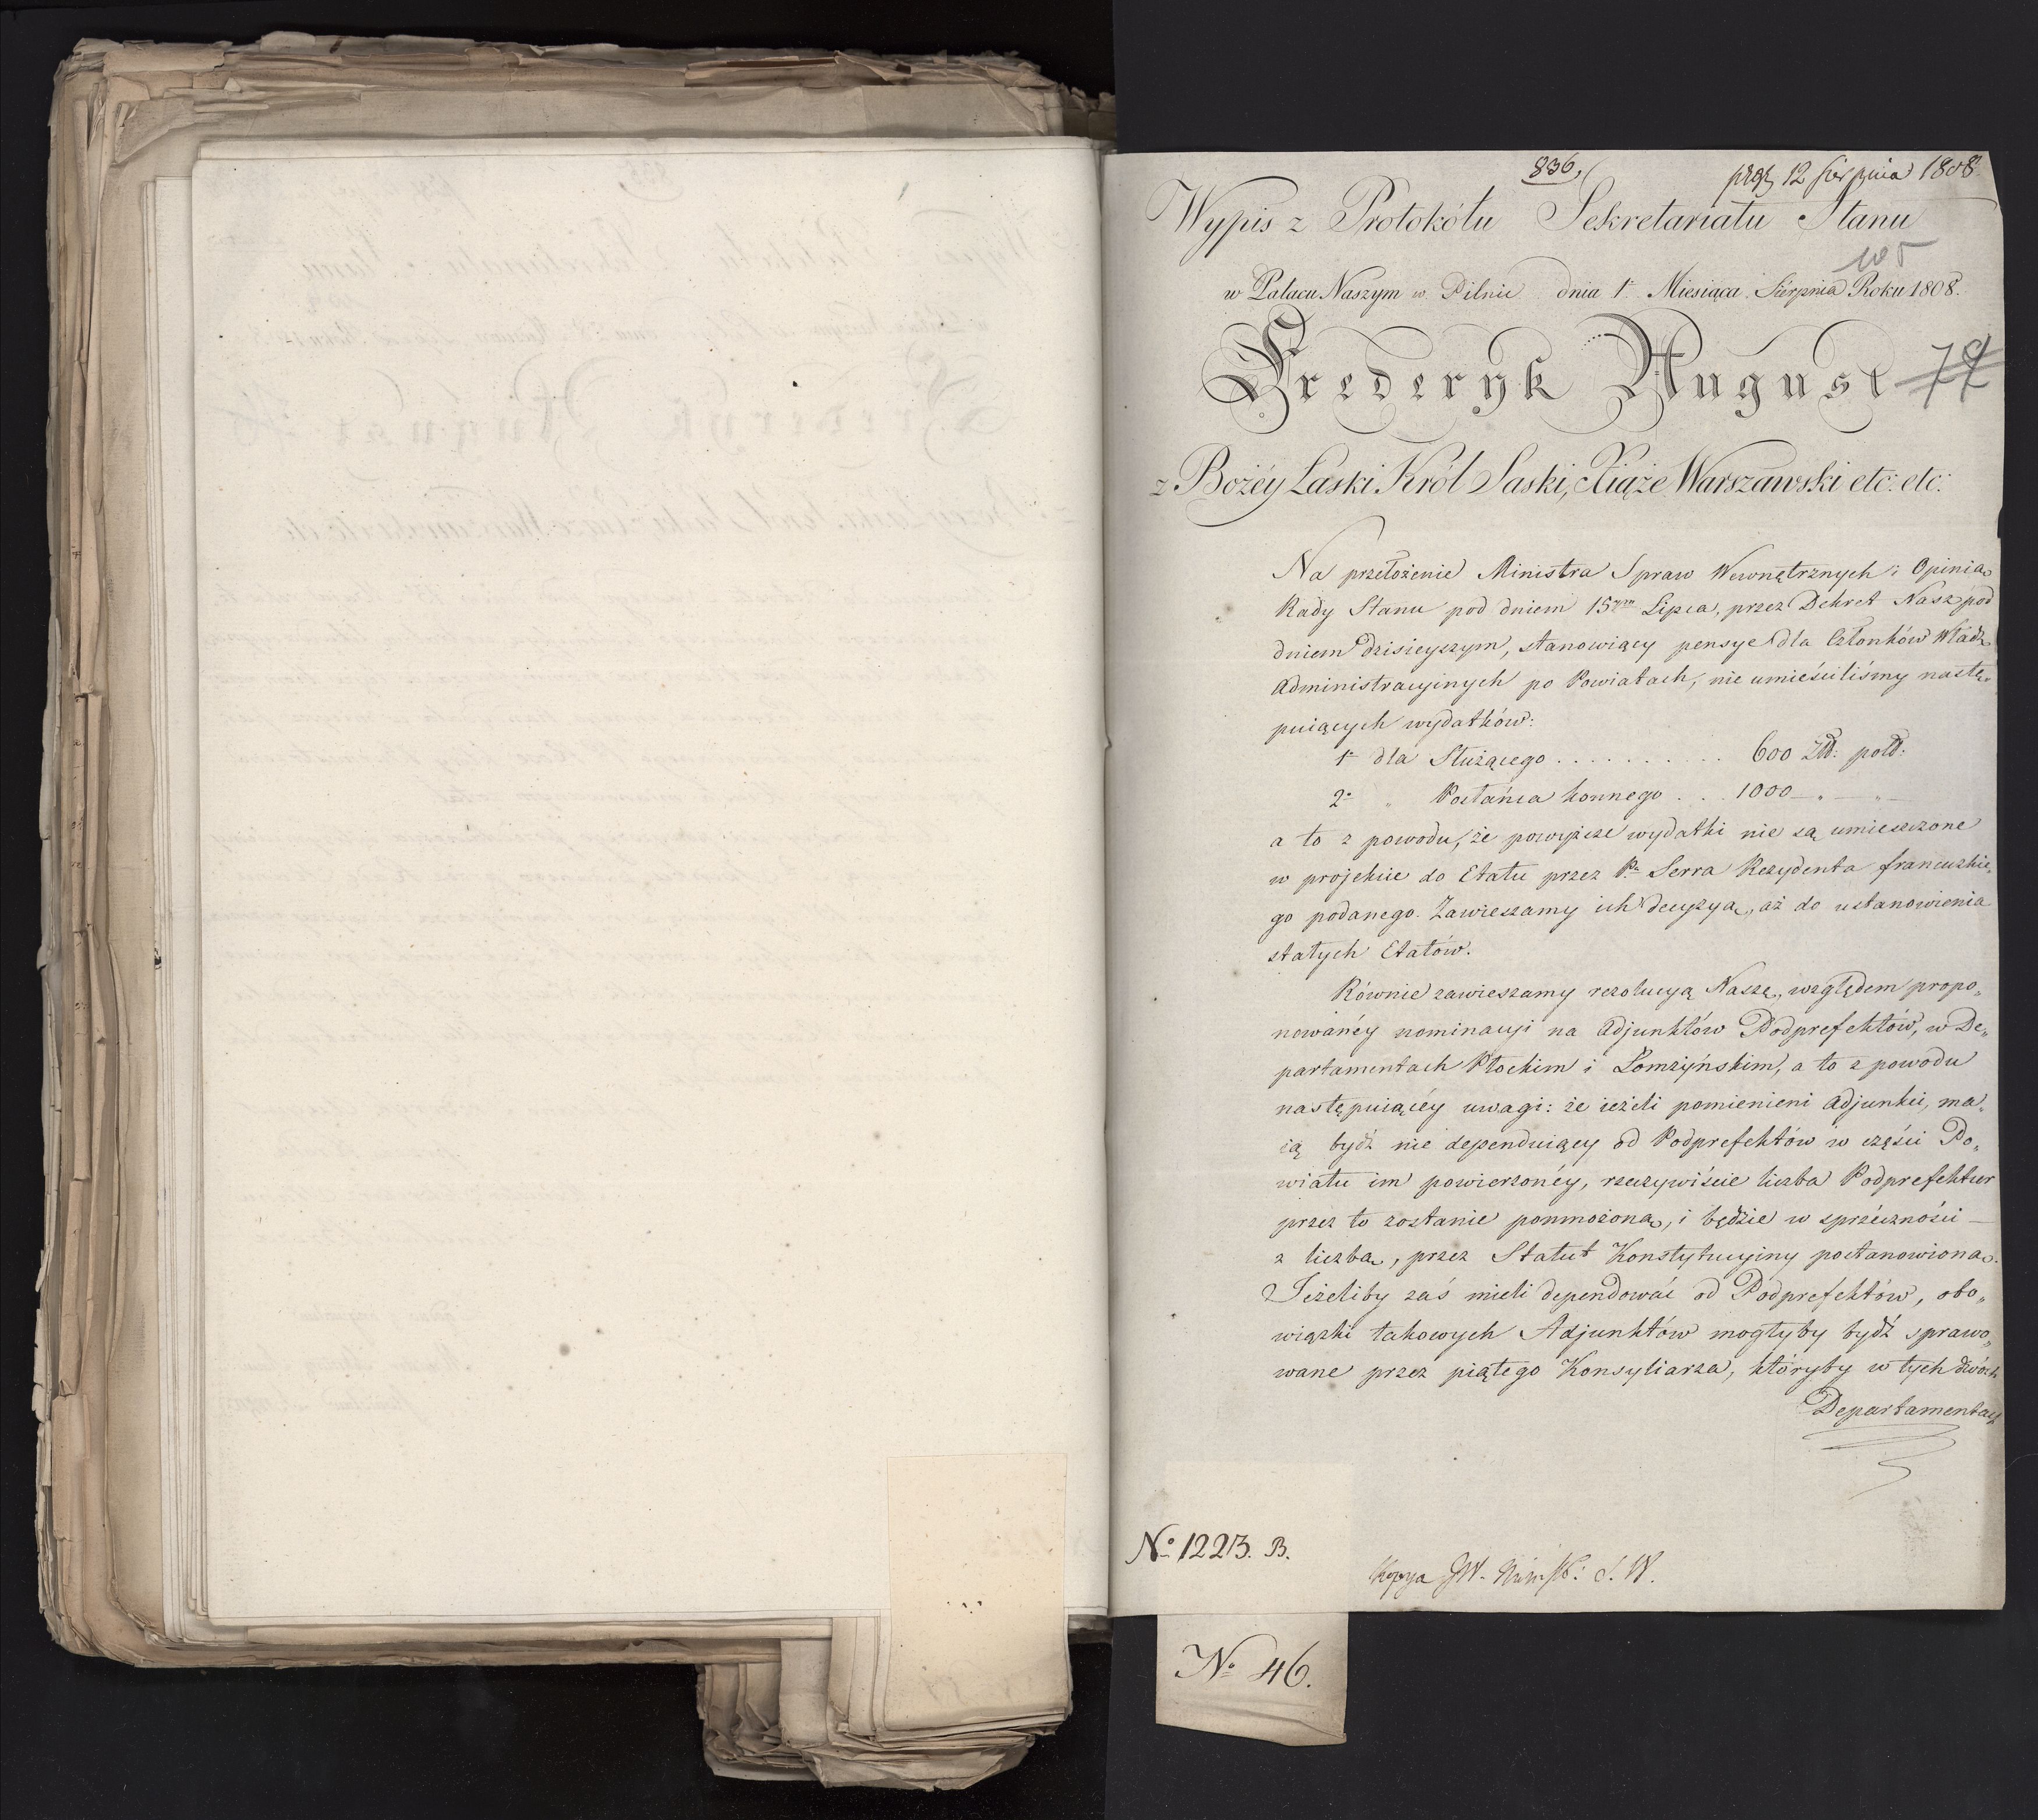 836,
12 Sierpnia 1808.
Wypis z Protokółu Sekretariatu Stanu
105
w Pałacu Naszym w Pilnic dnia 1. Miesiąca Sierpnia Roku 1808.
Frederyk August
z Bożéy Łaski Król Saski, Xiąże Warszawski etc: etc:
Na przełożenie Ministra Spraw Wewnętrznych i Opinią
Rady Stanu pod dniem 15tym Lipca, przez Dekret Nasz pod
dniem dzisieyszym, stanowiący pensye dla Członków Władz
Administracyinych po Powiatach, nie umieściliśmy nastę„
puiących wydatków:
1o dla Służącego . . . . . . . . . . 600 Złł: polł:
2o „ Posłańca konnego . . . 1000 — „ — „ —
a to z powodu, że powyższe wydatki nie są umieszczone
w projekcie do Etatu przez Pa Serra Rezydenta francuzkie„
go podanego. Zawieszamy ich decyzyą, aż do ustanowienia
stałych Etatów.
Równie zawieszamy rezolucyą Naszę, względem propo„
nowanéy nominacyi na Adjunktów Podprefektów, w De„
partamentach Płockim i Łomżyńskim, a to z powodu
następuiącéy uwagi: że ieżeli pomienieni Adjunkci, ma„
ią bydź nie dependuiący od Podprefektów w części Po„
wiatu im powierzonéy, rzeczywiście liczba Podprefektur
przez to zostanie pomnożoną, i będzie w sprzéczności —
z liczbą, przez Statut Konstytucyiny postanowioną.
Jeżeliby zaś mieli dependować od Podprefektów, obo„
wiązki takowych Adjunktów mogłyby bydź sprawo„
wane przez piątego Konsyliarza, któryby w tych dwóch
Departamentach
No 1223. B.
Kopya JW. Minist: S. W.
No 46.